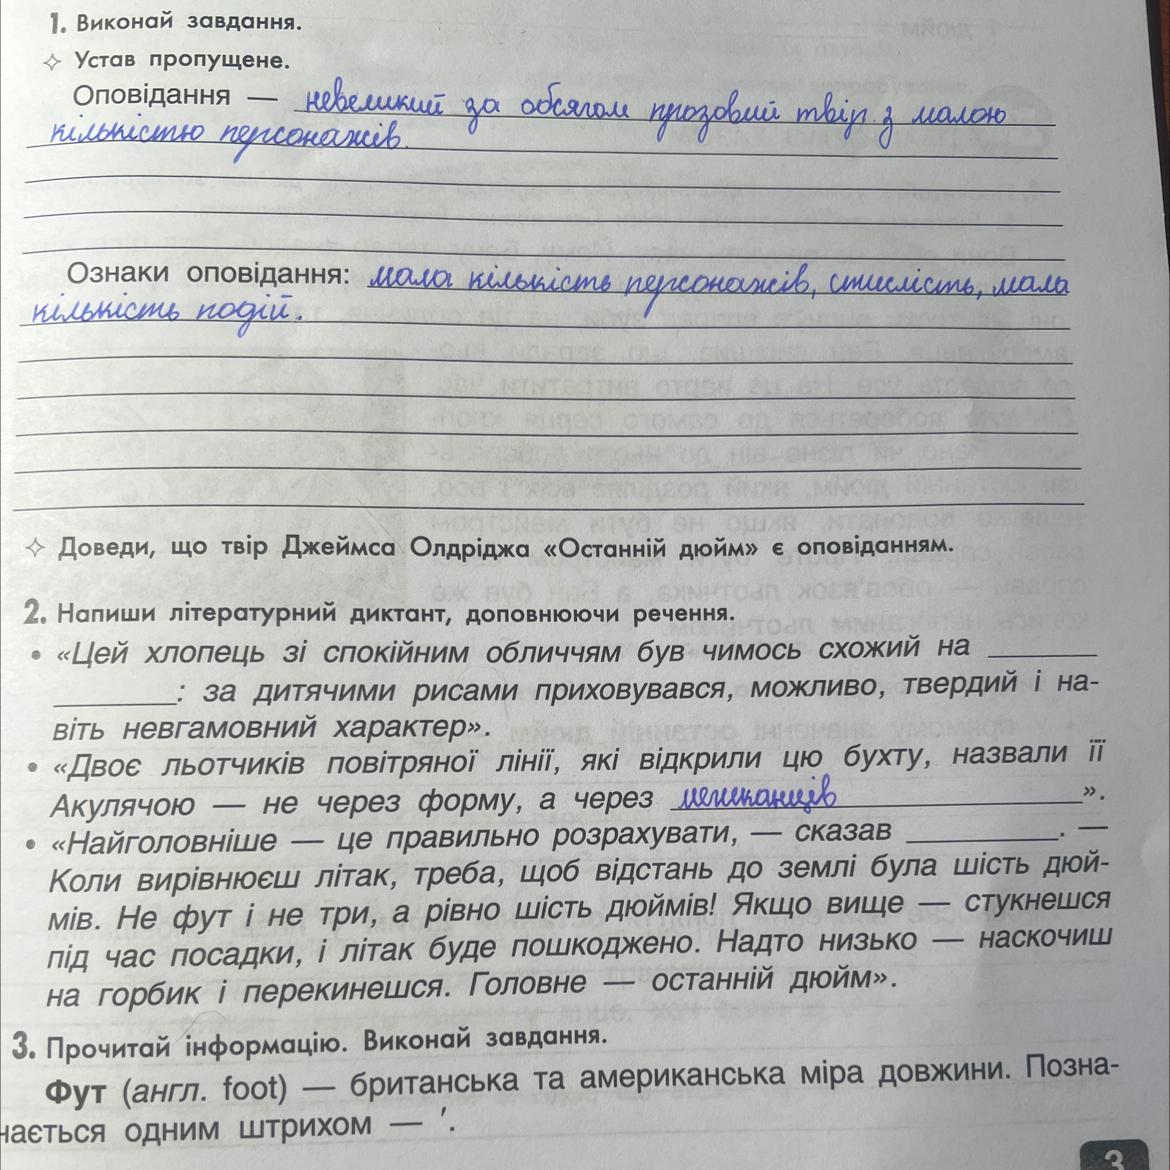 1. Виконай завдання.
✧ Устав пропущене.
Оповідання — невеликий за обсягом прозовий твір з малою
кількістю персонажів.
Ознаки оповідання: мала кількість персонажів, стислість, мала
кількість подій.
✧ Доведи, що твір Джеймса Олдріджа «Останній дюйм» є оповіданням.
2. Напиши літературний диктант, доповнюючи речення.
• «Цей хлопець зі спокійним обличчям був чимось схожий на ______
______: за дитячими рисами приховувався, можливо, твердий і на-
віть невгамовний характер».
• «Двоє льотчиків повітряної лінії, які відкрили цю бухту, назвали її
Акулячою — не через форму, а через мешканців».
• «Найголовніше — це правильно розрахувати, — сказав ______. —
Коли вирівнюєш літак, треба, щоб відстань до землі була шість дюй-
мів. Не фут і не три, а рівно шість дюймів! Якщо вище — стукнешся
під час посадки, і літак буде пошкоджено. Надто низько — наскочиш
на горбик і перекинешся. Головне — останній дюйм».
3. Прочитай інформацію. Виконай завдання.
Фут (англ. foot) — британська та американська міра довжини. Позна-
чається одним штрихом — ′.
3